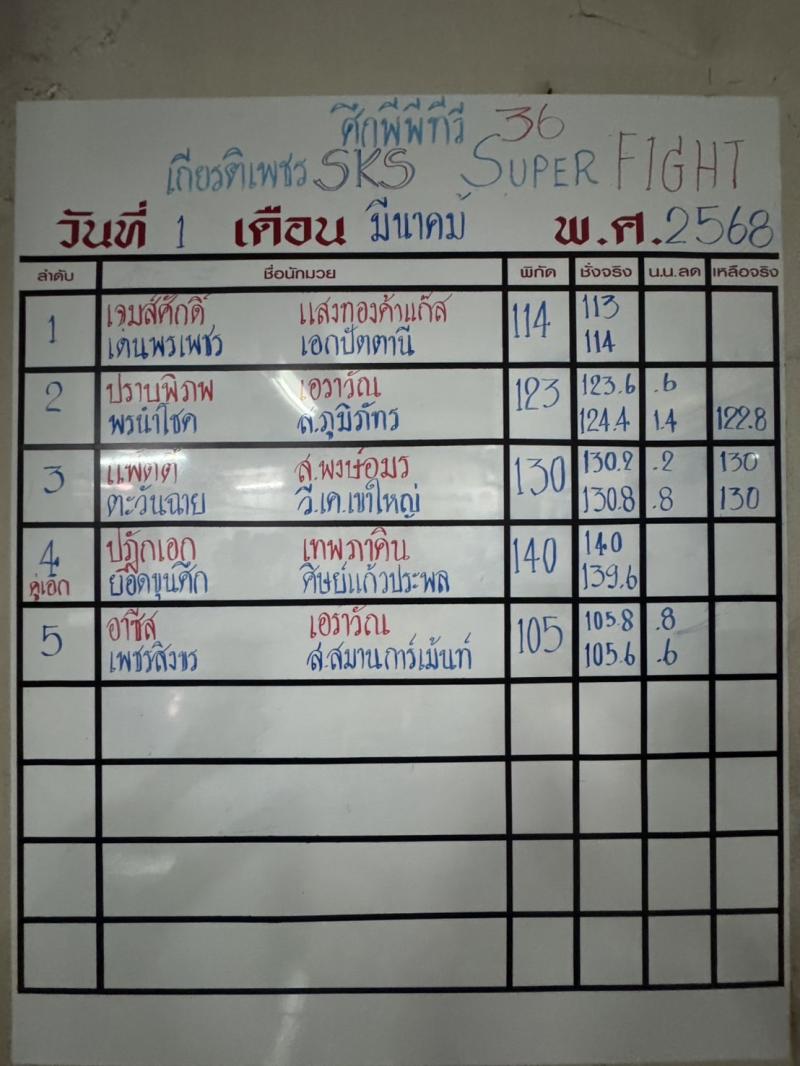 ศึกพีพีทีวี 36
เกียรติเพชร SKS SUPER FIGHT
วันที่ 1 เดือน มีนาคม พ.ศ.2568
ลำดับ ชื่อนักมวย พิกัด ชั่งจริง น.น.ลด เหลือจริง
1 เจมส์ศักดิ์ แสงทองค้าแก๊ส 114 113
เด่นพรเพชร เอกปัตตานี 114
2 ปราบพิภพ เอราวัณ 123 123.6 .6
พรนำโชค ส.ภูมิภัทร 124.4 1.4 122.8
3 แฟตตี้ ส.พงษ์อมร 130 130.2 .2 130
ตะวันฉาย วี.เค.เขาใหญ่ 130.8 .8 130
4 ปฏักเอก เทพภาคิน 140 140
คู่เอก ยอดขุนศึก ศิษย์แก้วประพล 139.6
5 อาซีส เอราวัณ 105 105.8 .8
เพชรสิงขร ส.สมานการ์เม้นท์ 105.6 .6